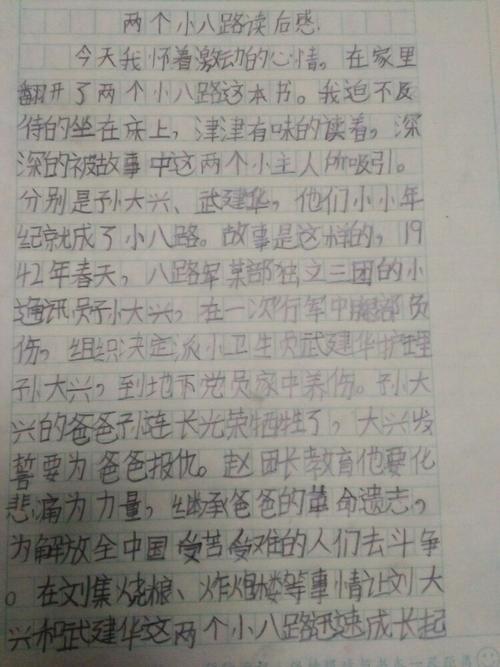 两个小八路读后感
今天我怀着激动的心情。在家里
翻开了两个小八路这本书。我迫不及
待的坐在床上，津津有味的读着，深
深的被故事中这两个小主人所吸引。
分别是孙大兴、武建华，他们小小年
纪就成了小八路。故事是这样的，19
42年春天，八路军某部独立三团的小
通讯员孙大兴，在一次行军中腿部负
伤，组织决定派小卫生员武建华护理
孙大兴，到地下党员家中养伤。孙大
兴的爸爸孙连长光荣牺牲了，大兴发
誓要为爸爸报仇。赵团长教育他要化
悲痛为力量，继承爸爸的革命遗志，
为解放全中国受苦受难的人们去斗争
。在刘集烧粮、炸炮楼等事情让刘大
兴和武建华这两个小八路迅速成长起